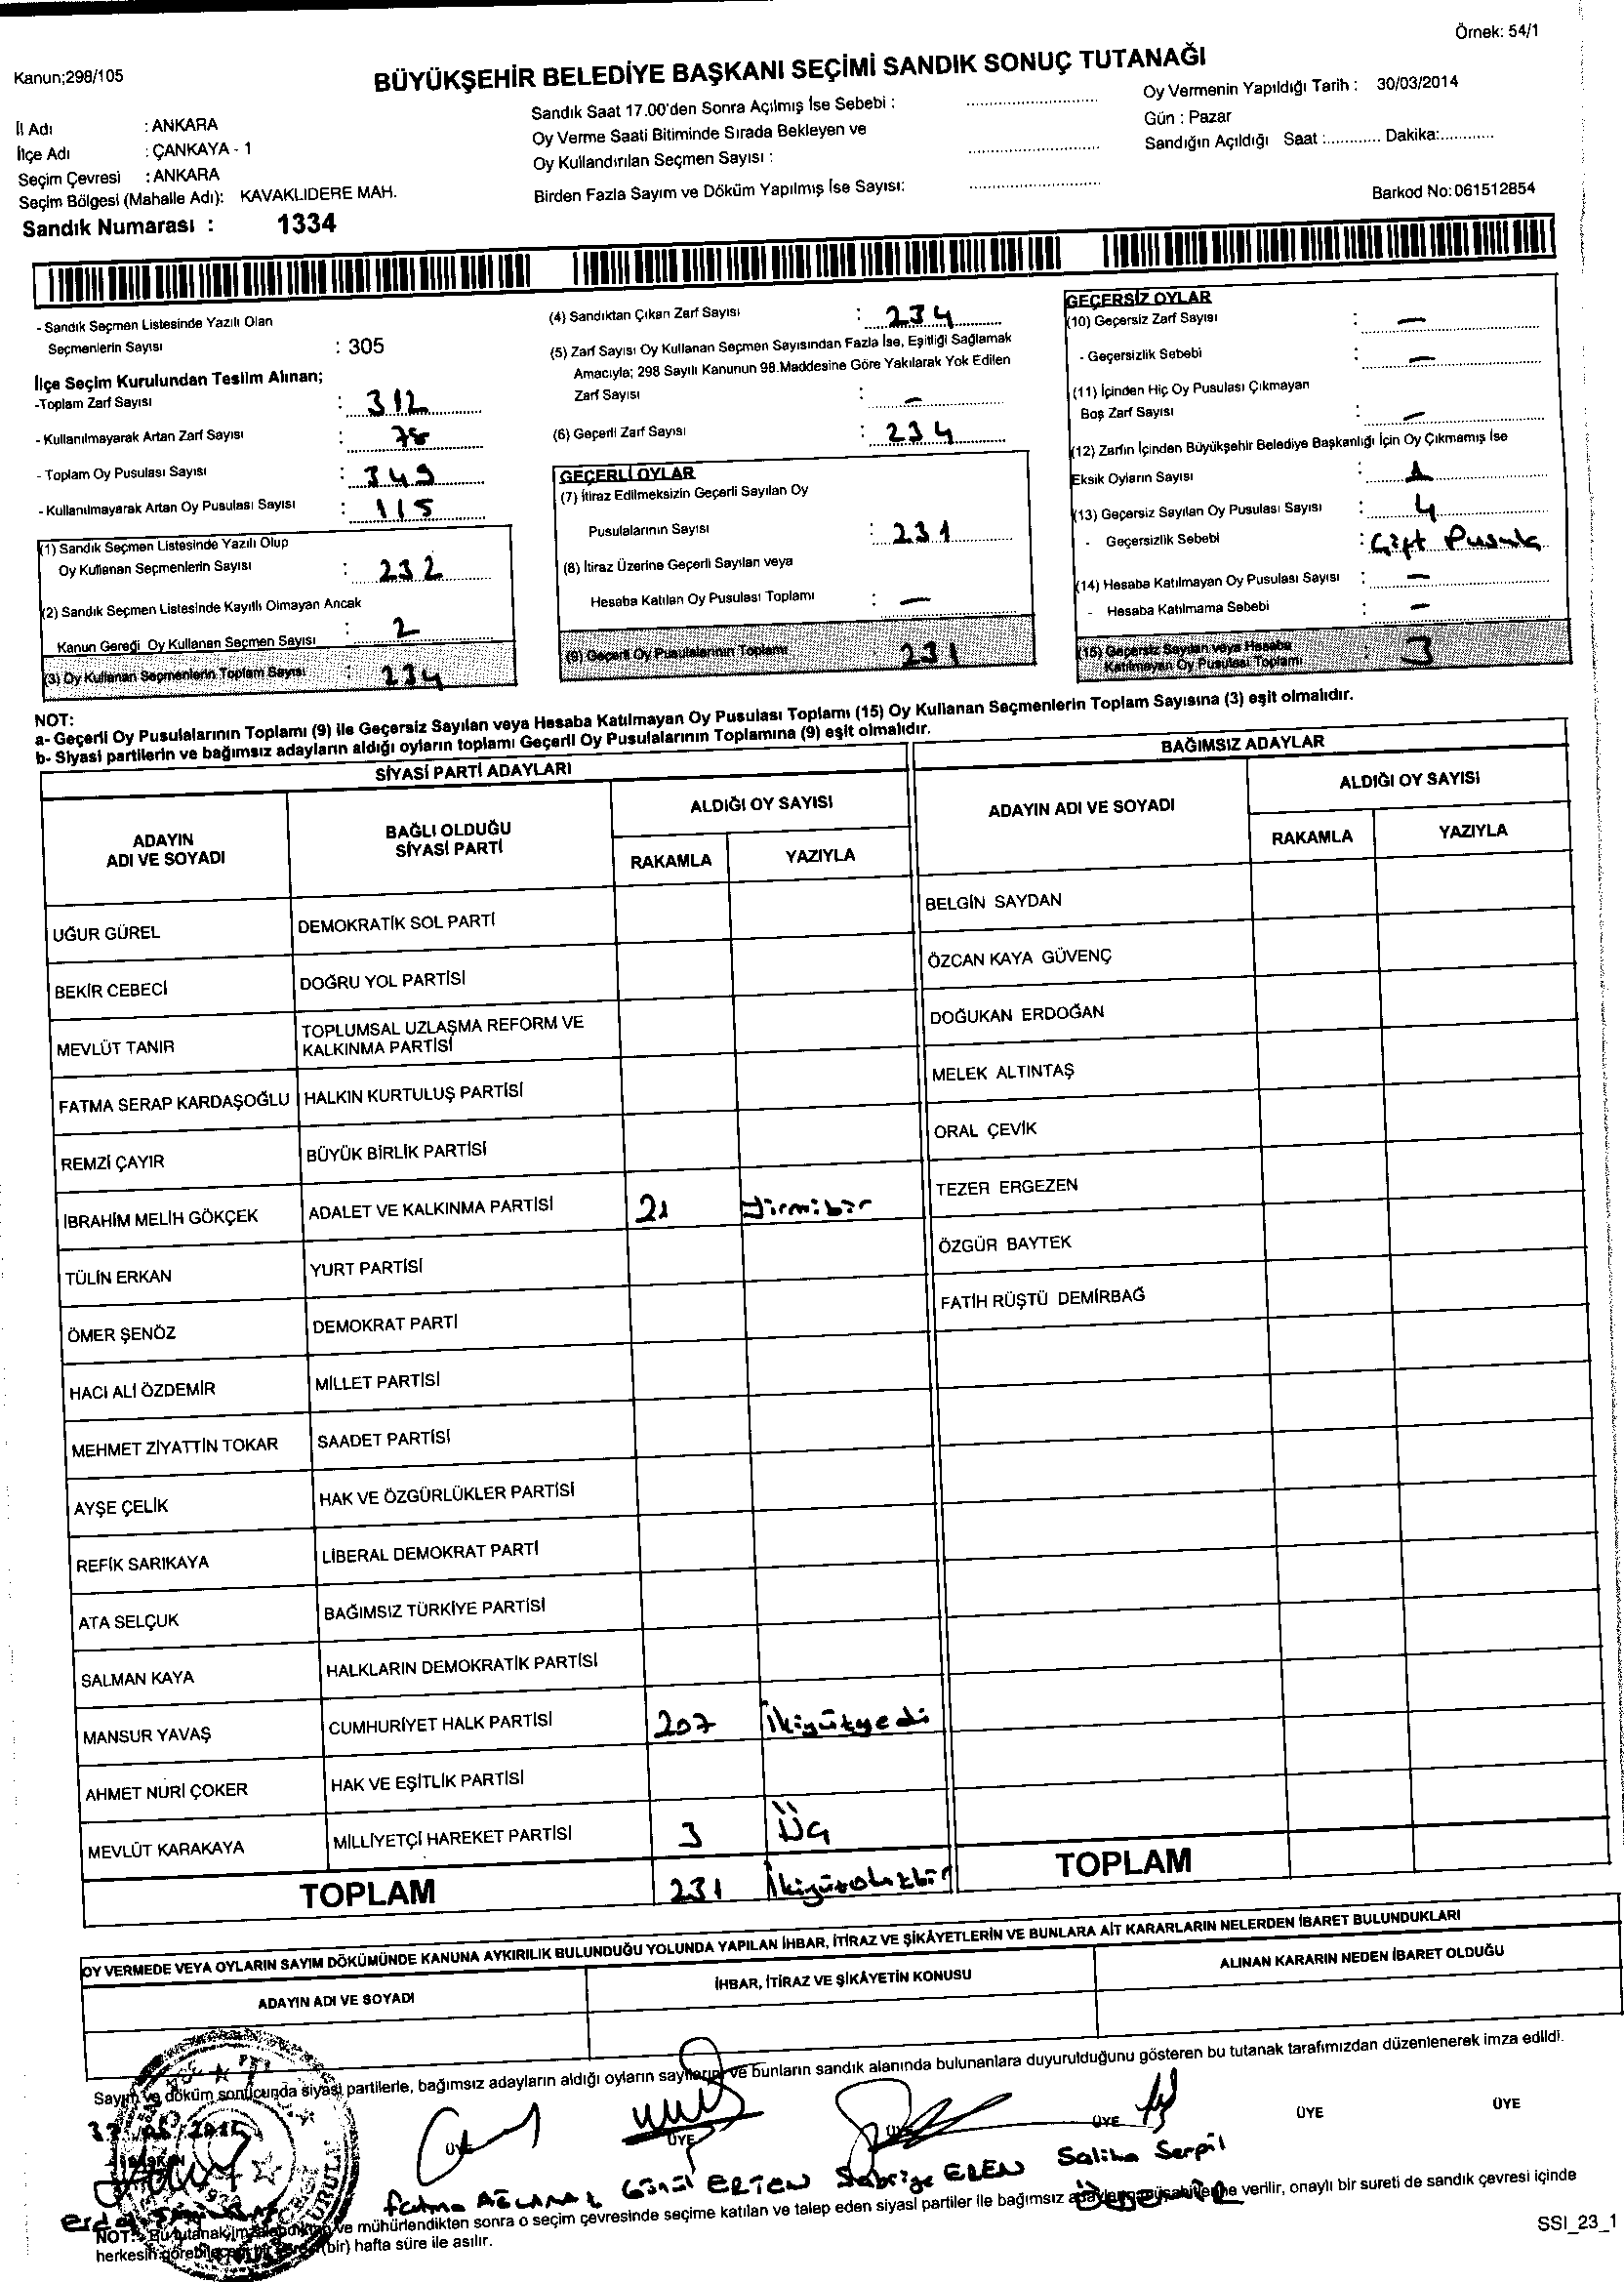 Örnek: 54/1
Kanun;298/105
BÜYÜKŞEHİR BELEDİYE BAŞKANI SEÇİMİ SANDIK SONUÇ TUTANAĞI
İl Adı : ANKARA
İlçe Adı : ÇANKAYA - 1
Seçim Çevresi : ANKARA
Seçim Bölgesi (Mahalle Adı): KAVAKLIDERE MAH.
Sandık Numarası : 1334
Sandık Saat 17.00'den Sonra Açılmış İse Sebebi :
Oy Verme Saati Bitiminde Sırada Bekleyen ve
Oy Kullandırılan Seçmen Sayısı :
Birden Fazla Sayım ve Döküm Yapılmış İse Sayısı:
Oy Vermenin Yapıldığı Tarih : 30/03/2014
Gün : Pazar
Sandığın Açıldığı Saat :............ Dakika:............
Barkod No: 061512854
- Sandık Seçmen Listesinde Yazılı Olan
Seçmenlerin Sayısı : 305
İlçe Seçim Kurulundan Teslim Alınan;
-Toplam Zarf Sayısı : 312
- Kullanılmayarak Artan Zarf Sayısı : 78
- Toplam Oy Pusulası Sayısı : 349
- Kullanılmayarak Artan Oy Pusulası Sayısı : 115
(1) Sandık Seçmen Listesinde Yazılı Olup
Oy Kullanan Seçmenlerin Sayısı : 232
(2) Sandık Seçmen Listesinde Kayıtlı Olmayan Ancak
Kanun Gereği Oy Kullanan Seçmen Sayısı : 2
(3) Oy Kullanan Seçmenlerin Toplam Sayısı : 234
(4) Sandıktan Çıkan Zarf Sayısı : 234
(5) Zarf Sayısı Oy Kullanan Seçmen Sayısından Fazla İse, Eşitliği Sağlamak
Amacıyla; 298 Sayılı Kanunun 98.Maddesine Göre Yakılarak Yok Edilen
Zarf Sayısı : -
(6) Geçerli Zarf Sayısı : 234
GEÇERLİ OYLAR
(7) İtiraz Edilmeksizin Geçerli Sayılan Oy
Pusulalarının Sayısı : 231
(8) İtiraz Üzerine Geçerli Sayılan veya
Hesaba Katılan Oy Pusulası Toplamı : -
(9) Geçerli Oy Pusulalarının Toplamı : 231
GEÇERSİZ OYLAR
(10) Geçersiz Zarf Sayısı : -
- Geçersizlik Sebebi : -
(11) İçinden Hiç Oy Pusulası Çıkmayan
Boş Zarf Sayısı : -
(12) Zarfın İçinden Büyükşehir Belediye Başkanlığı İçin Oy Çıkmamış İse
Eksik Oyların Sayısı : 1
(13) Geçersiz Sayılan Oy Pusulası Sayısı : 4
- Geçersizlik Sebebi : Çift Pusula
(14) Hesaba Katılmayan Oy Pusulası Sayısı : -
- Hesaba Katılmama Sebebi : -
(15) Geçersiz Sayılan veya Hesaba
Katılmayan Oy Pusulası Toplamı : 3
NOT:
a- Geçerli Oy Pusulalarının Toplamı (9) ile Geçersiz Sayılan veya Hesaba Katılmayan Oy Pusulası Toplamı (15) Oy Kullanan Seçmenlerin Toplam Sayısına (3) eşit olmalıdır.
b- Siyasi partilerin ve bağımsız adayların aldığı oyların toplamı Geçerli Oy Pusulalarının Toplamına (9) eşit olmalıdır.
SİYASİ PARTİ ADAYLARI
ADAYIN
ADI VE SOYADI
BAĞLI OLDUĞU
SİYASİ PARTİ
ALDIĞI OY SAYISI
RAKAMLA YAZIYLA
UĞUR GÜREL DEMOKRATİK SOL PARTİ
BEKİR CEBECİ DOĞRU YOL PARTİSİ
MEVLÜT TANIR TOPLUMSAL UZLAŞMA REFORM VE
KALKINMA PARTİSİ
FATMA SERAP KARDAŞOĞLU HALKIN KURTULUŞ PARTİSİ
REMZİ ÇAYIR BÜYÜK BİRLİK PARTİSİ
İBRAHİM MELİH GÖKÇEK ADALET VE KALKINMA PARTİSİ 21 Yirmibir
TÜLİN ERKAN YURT PARTİSİ
ÖMER ŞENÖZ DEMOKRAT PARTİ
HACI ALİ ÖZDEMİR MİLLET PARTİSİ
MEHMET ZİYATTİN TOKAR SAADET PARTİSİ
AYŞE ÇELİK HAK VE ÖZGÜRLÜKLER PARTİSİ
REFİK SARIKAYA LİBERAL DEMOKRAT PARTİ
ATA SELÇUK BAĞIMSIZ TÜRKİYE PARTİSİ
SALMAN KAYA HALKLARIN DEMOKRATİK PARTİSİ
MANSUR YAVAŞ CUMHURİYET HALK PARTİSİ 207 İkiyüzyedi
AHMET NURİ ÇOKER HAK VE EŞİTLİK PARTİSİ
MEVLÜT KARAKAYA MİLLİYETÇİ HAREKET PARTİSİ 3 Üç
TOPLAM 231 İkiyüzotuzbir
BAĞIMSIZ ADAYLAR
ADAYIN ADI VE SOYADI
ALDIĞI OY SAYISI
RAKAMLA YAZIYLA
BELGİN SAYDAN
ÖZCAN KAYA GÜVENÇ
DOĞUKAN ERDOĞAN
MELEK ALTINTAŞ
ORAL ÇEVİK
TEZER ERGEZEN
ÖZGÜR BAYTEK
FATİH RÜŞTÜ DEMİRBAĞ
TOPLAM
OY VERMEDE VEYA OYLARIN SAYIM DÖKÜMÜNDE KANUNA AYKIRILIK BULUNDUĞU YOLUNDA YAPILAN İHBAR, İTİRAZ VE ŞİKÂYETLERİN VE BUNLARA AİT KARARLARIN NELERDEN İBARET BULUNDUKLARI
ADAYIN ADI VE SOYADI
İHBAR, İTİRAZ VE ŞİKÂYETİN KONUSU
ALINAN KARARIN NEDEN İBARET OLDUĞU
Sayım ve döküm sonucunda siyasi partilerle, bağımsız adayların aldığı oyların sayılarını ve bunların sandık alanında bulunanlara duyurulduğunu gösteren bu tutanak tarafımızdan düzenlenerek imza edildi.
ÜYE ÜYE ÜYE ÜYE ÜYE ÜYE
Fatma Gönül ERTEN EREN Saliha Serpil
NOT: Bu tutanak ve mühürlendikten sonra o seçim çevresinde seçime katılan ve talep eden siyasi partiler ile bağımsız verilir, onaylı bir sureti de sandık çevresi içinde
herkesin (bir) hafta süre ile asılır.
SSI_23_1